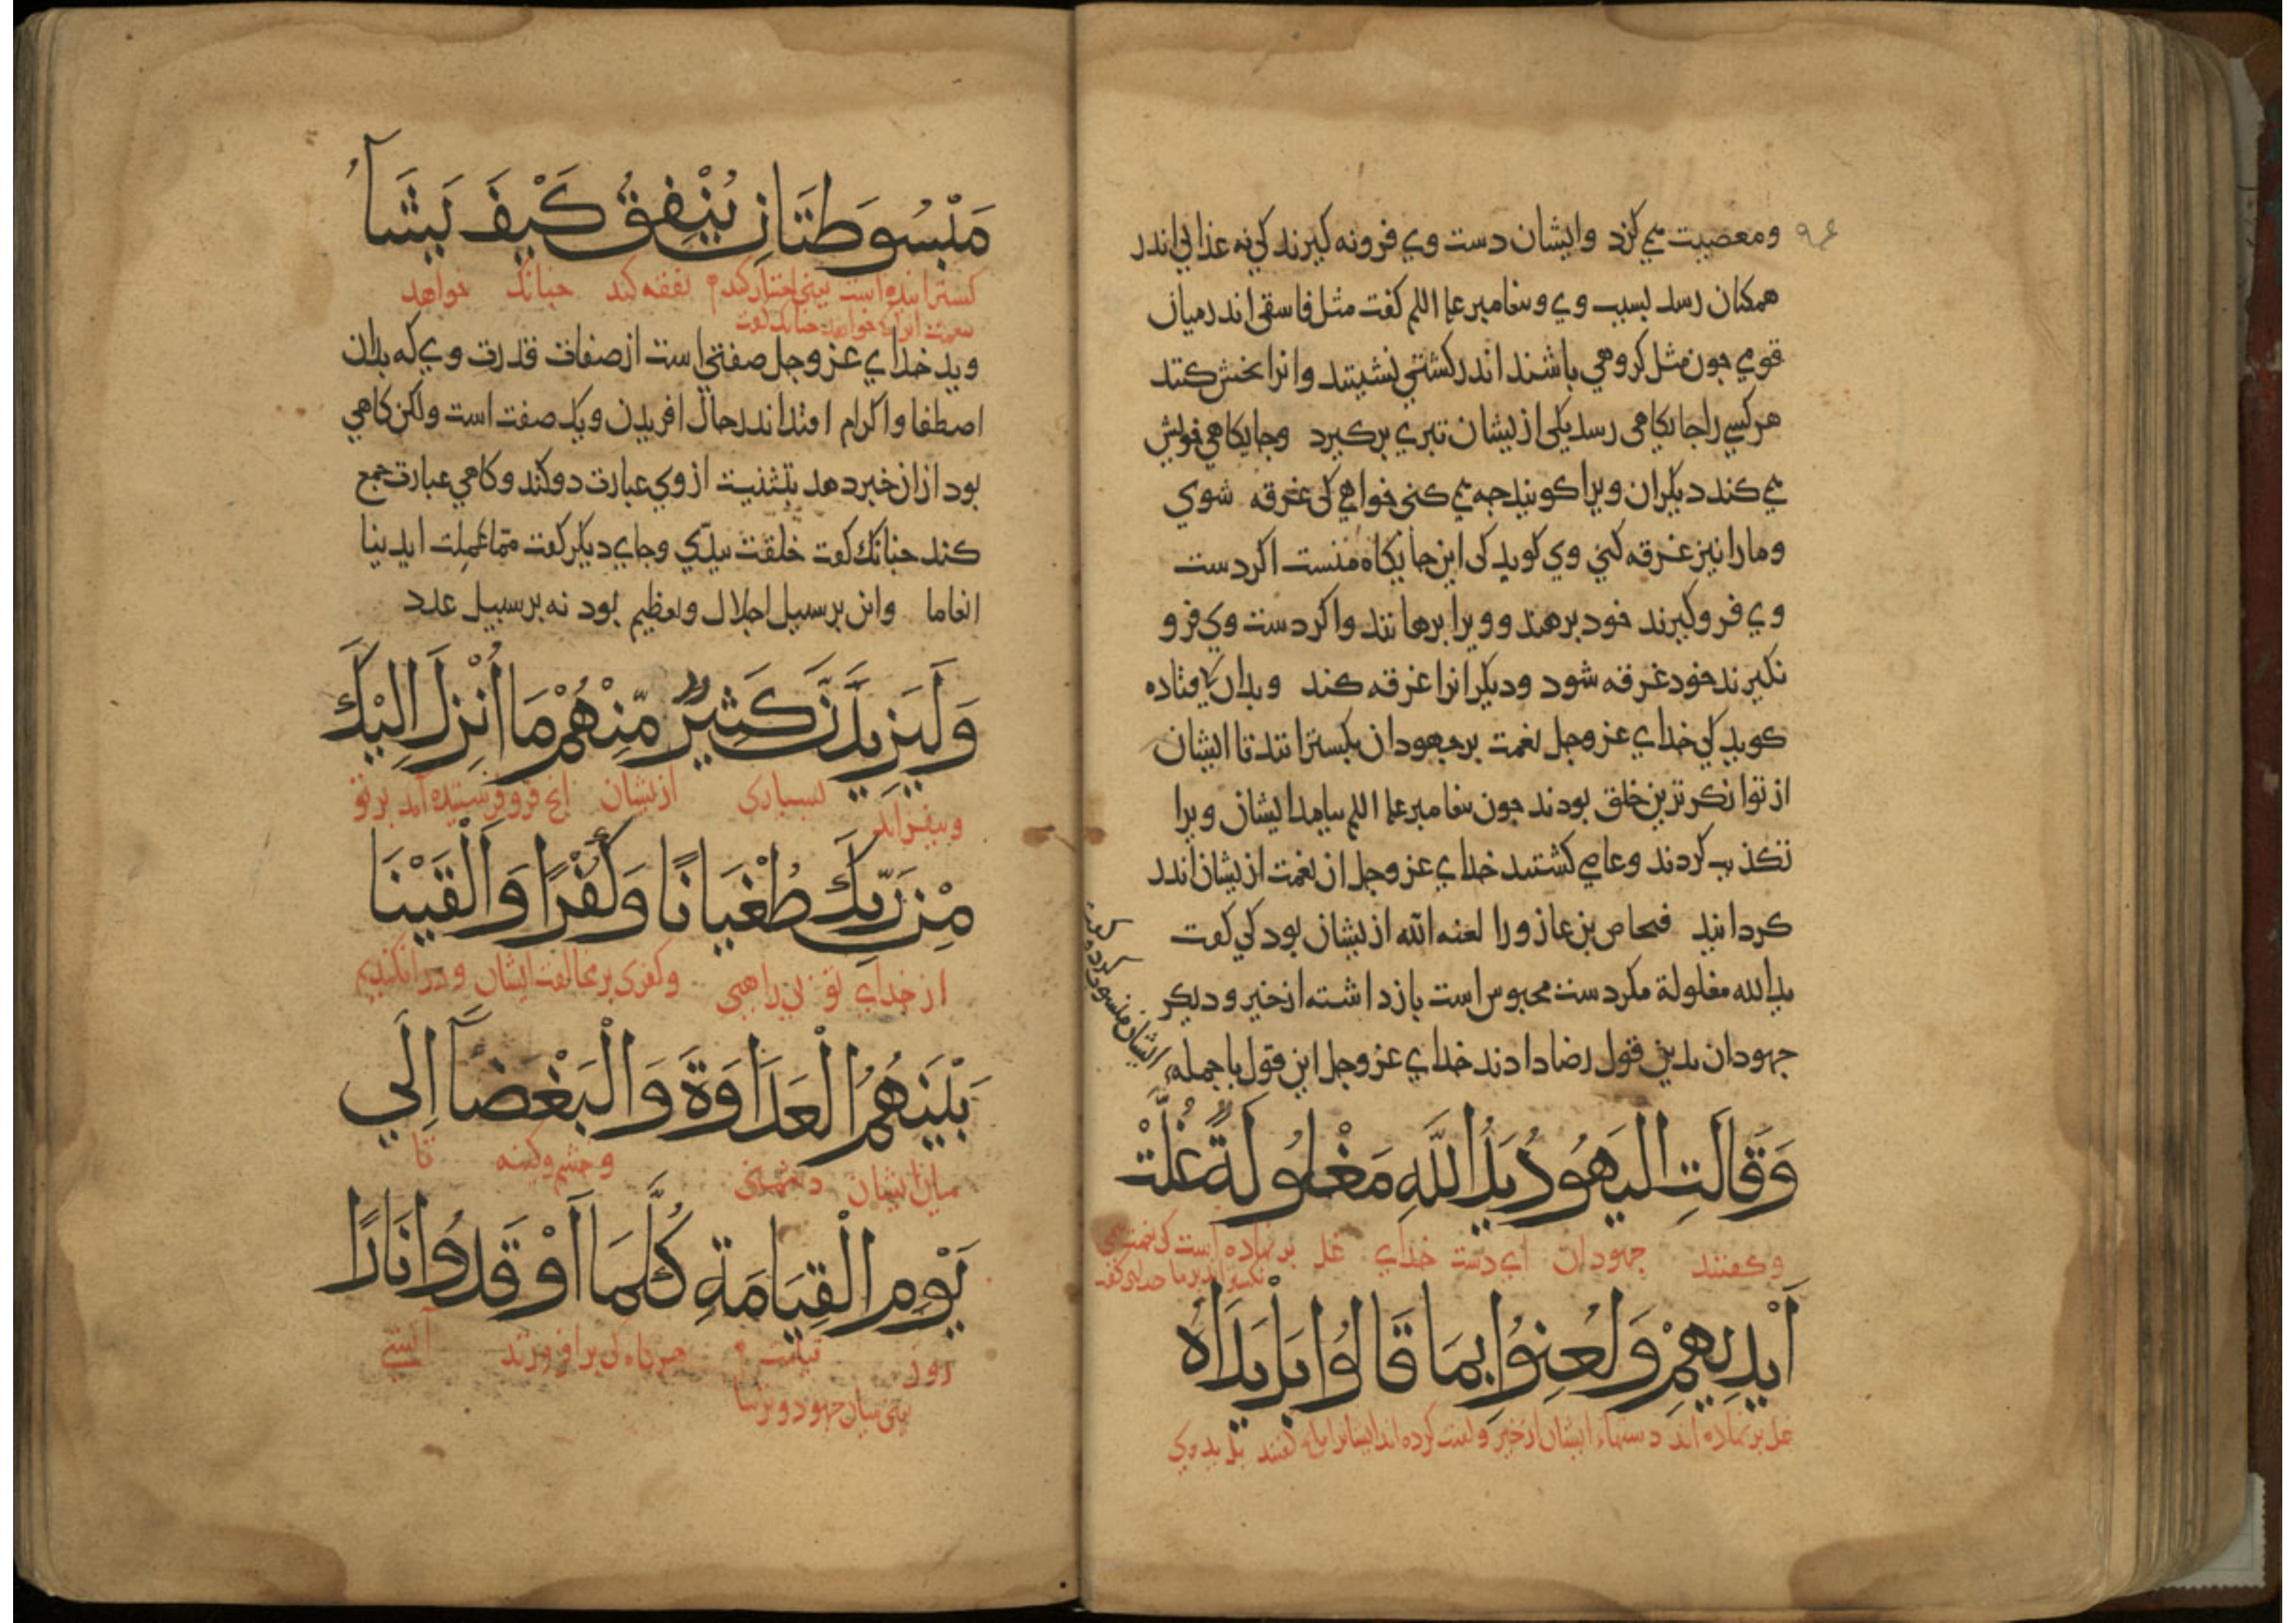 ومعصیت می کرد وایشان دست وی فرو نه کیرند کی نه عذابی اندر
همکنان رسد بسبب وی وبیغامبر علم اللم کفت مثل فاسقی اندر میان
قومی جون مثل کروهی باشند اندر کشتی نشینند وانرا بخش کنند
هر کسی را جایکاهی رسد یکی از یشان تبری برکیرد وجایکاهی خویش
می کند دیکران ویرا کویند جه می کنی خواهی کی غرقه شوی
ومارا نیز غرقه کنی وی کوید کی این جایکاه منست اکر دست
وی فرو کیرند خود برهند وویرا برهانند واکر دست وی فرو
نکیرند خود غرقه شود ودیکرانرا غرقه کند وبدان
کوید کی خدای عز وجل نعمت بر جهودان بکسترانند تا ایشان
از توانکر ترین خلق بودند جون بیغامبر علم اللم بیامد ایشان ویرا
تکذیب کردند وعاصی کشتند خدای عز وجل ان نعمت از یشان اندر
کردانید فنحاص بن عازورا لعنه الله از یشان بود کی کفت
ید الله مغلولة مکر دست محبوس است باز داشته از خیر ودیکر
جهودان بدین قول رضا دادند خدای عز وجل این قول باجمله
ایشان منسوب کرده
وَقَالَتِ الیَهُودُ یَدُ اللَّهِ مَغْلُولَةٌ غُلَّتْ
وکفتند جهودان ای دست خدای غل بر نهاده است کی نعمت
اَیْدِیهِمْ وَلُعِنُوا بِمَا قَالُوا بَلْ یَدَاهُ
غل بر نهاده اند دستهاء ایشان از خیر ولعنت کرده اند ایشانرا کفتند بل ید وی
مَبْسُوطَتَانِ یُنْفِقُ كَیْفَ یَشَآءُ
کسترانیده است نفقه کند جنانک خواهد
وید خدای عز وجل صفتی است از صفات قدرت وی که بدان
اصطفا واکرام افتد اندر حال افریدن ویک صفت است ولکن کاهی
بود از ان خبر دهد بتثنیت از وی عبارت دو کند وکاهی عبارت جمع
کند جنانک کفت خلقت بیدی وجای دیکر کفت مما عملت ایدینا
انعاما واین بر سبیل اجلال وتعظیم بود نه بر سبیل عدد
وَلَیَزِیدَنَّ كَثِیرٌ مِّنْهُمْ مَا اُنْزِلَ اِلَیْكَ
وبیفزاید بسیاری ازیشان انج فرو فرستیده آمد بر تو
مِنْ رَبِّكَ طُغْیَانًا وَكُفْرًا وَاَلْقَیْنَا
از خدای تو بی راهی وکفری بر مخالفت ایشان ودر افکندیم
بَیْنَهُمُ الْعَدَاوَةَ وَالْبَغْضَآ اِلَی
میان ایشان دشمنی وخشم وکینه تا
یَوْمِ الْقِیَامَةِ كُلَّمَا اَوْقَدُوا نَارًا
روز قیامت هر کاه کی بر افروزند آتشی
یعنی میان جهود وترسا